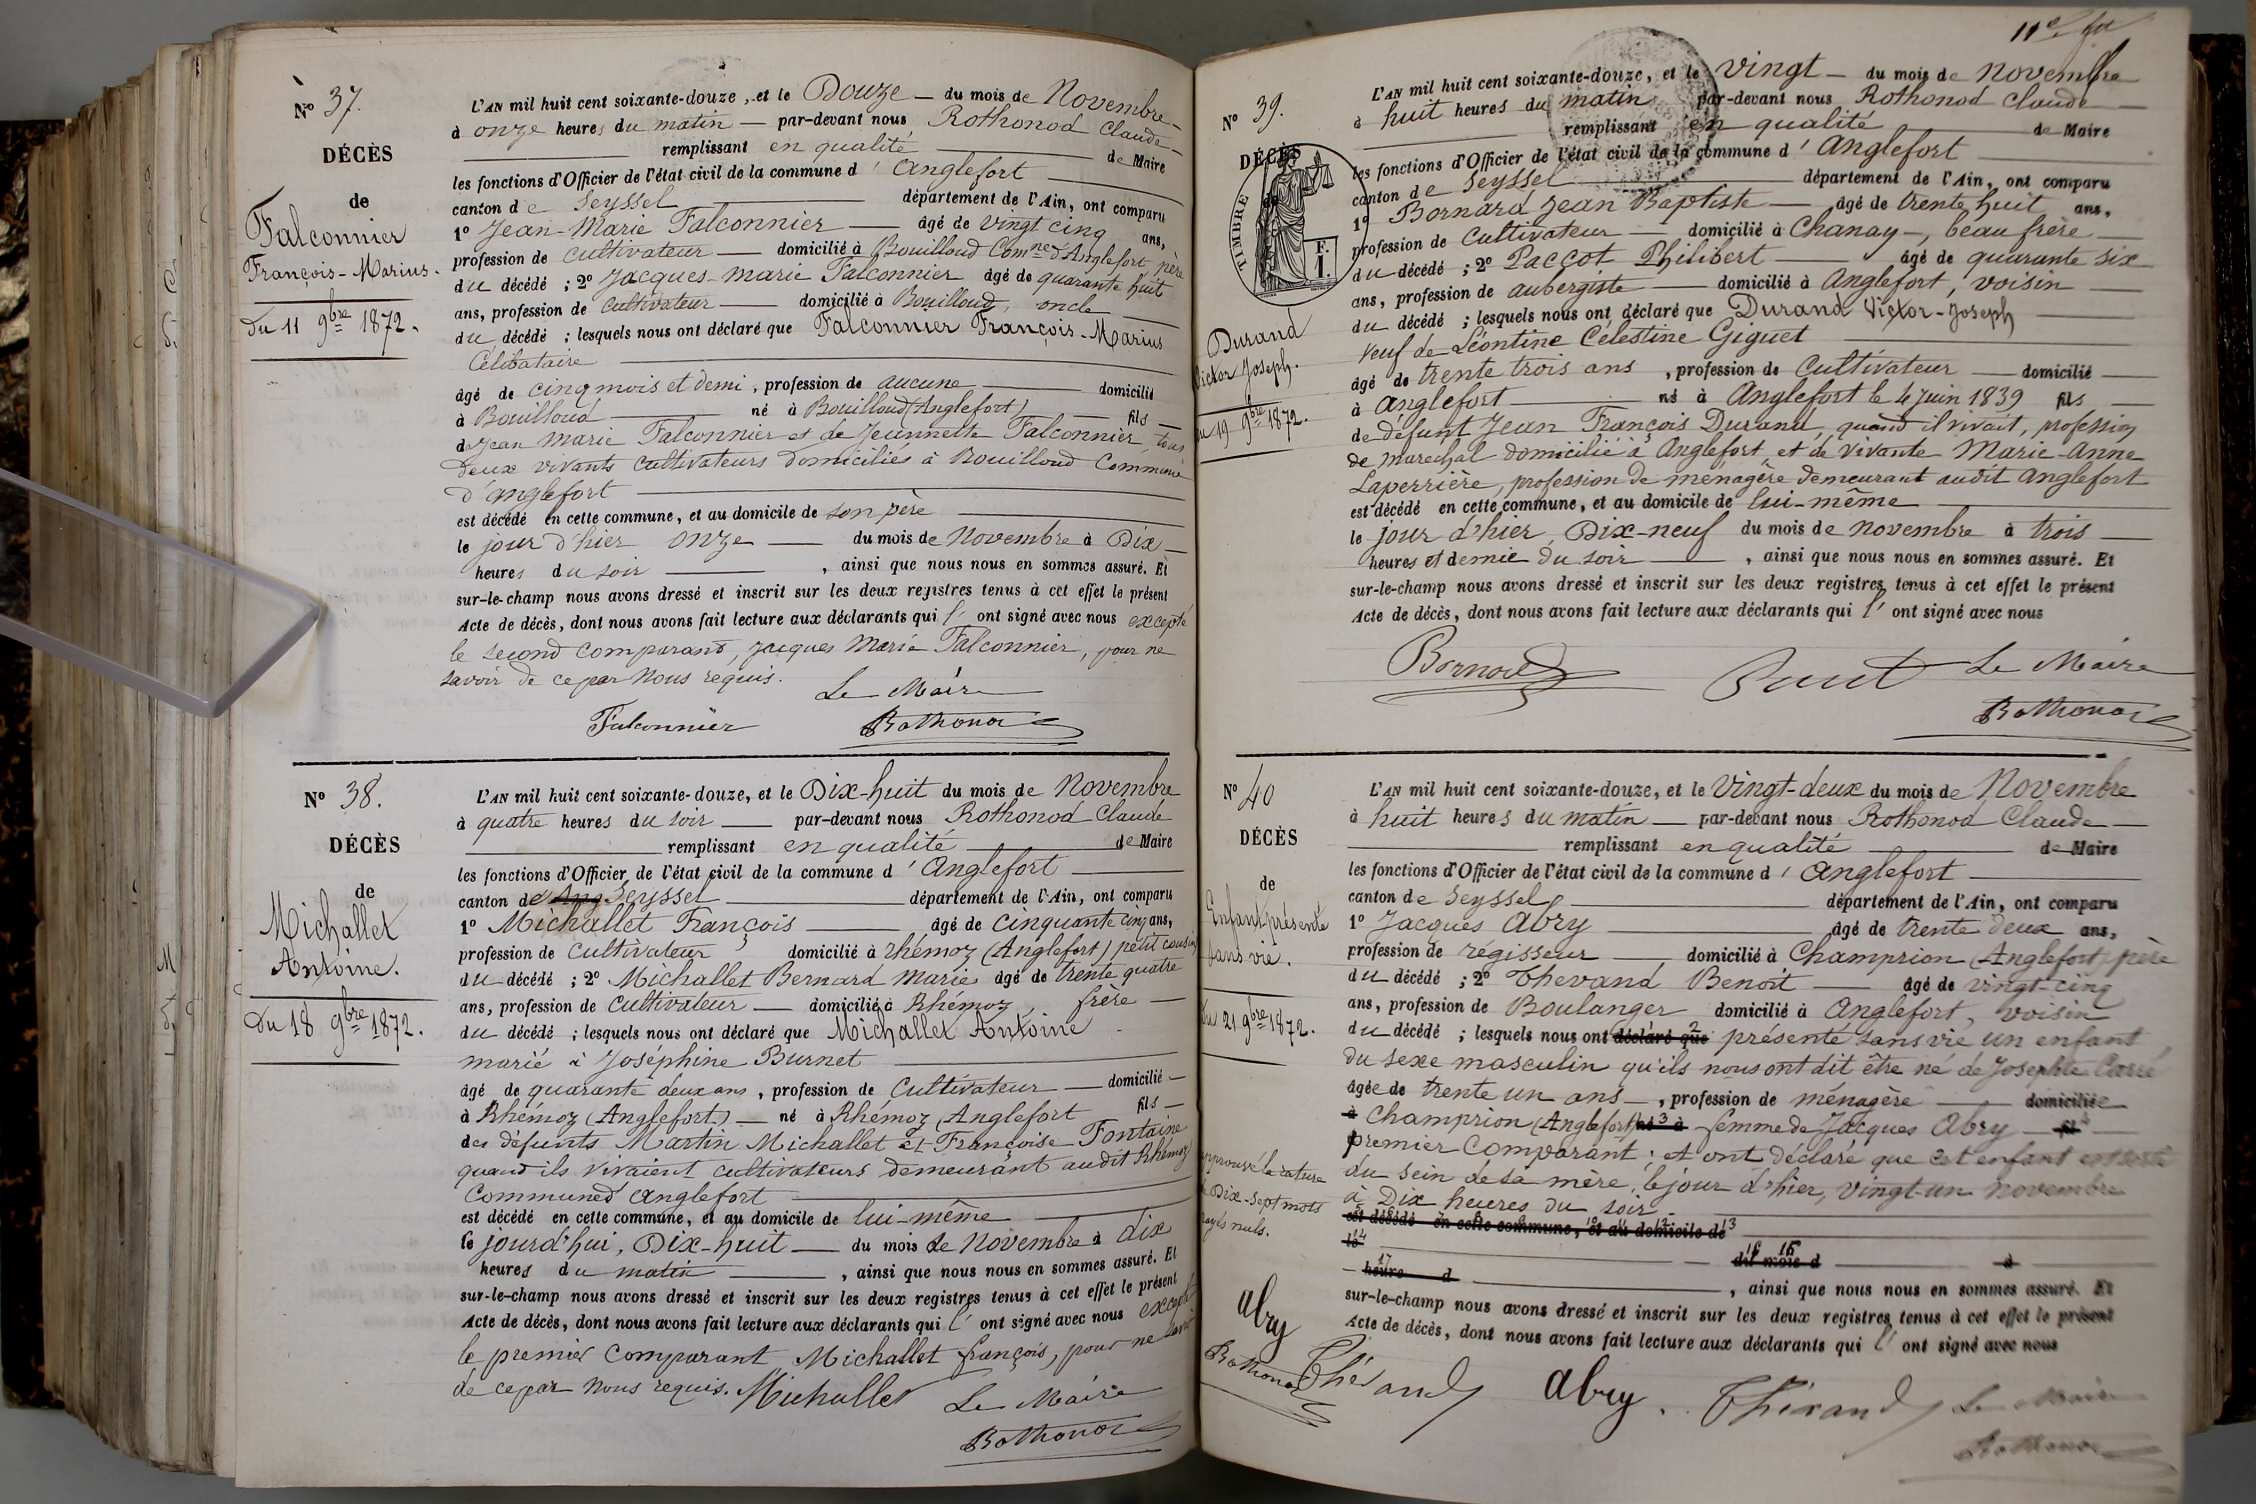 N° 37.
DÉCÈS
de
Falconnier
François-Marius.
Du 11 9bre 1872.
L'AN mil huit cent soixante-douze, et le Douze du mois de Novembre
à onze heures du matin par-devant nous Rothonod Claude
remplissant en qualité de Maire
les fonctions d'Officier de l'état civil de la commune d'Anglefort
canton de Seyssel département de l'Ain, ont comparu
1° Jean-Marie Falconnier âgé de vingt cinq ans,
profession de cultivateur domicilié à Bouilloud Comne d'Anglefort père
du décédé ; 2° Jacques-Marie Falconnier âgé de quarante huit
ans, profession de cultivateur domicilié à Bouilloud, oncle
du décédé ; lesquels nous ont déclaré que Falconnier François-Marius
Célibataire
âgé de cinq mois et demi, profession de aucune domicilié
à Bouilloud né à Bouilloud (Anglefort) fils
de Jean Marie Falconnier et de Jeunnette Falconnier tous
deux vivants cultivateurs domiciliés à Bouilloud Commune
d'Anglefort
est décédé en cette commune, et au domicile de son père
le jour d'hier onze du mois de Novembre à Dix
heures du soir, ainsi que nous nous en sommes assuré. Et
sur-le-champ nous avons dressé et inscrit sur les deux registres tenus à cet effet le présent
Acte de décès, dont nous avons fait lecture aux déclarants qui l'ont signé avec nous excepté
le second comparant, Jacques Marie Falconnier, pour ne
savoir de ce par nous requis.
Le Maire
Falconnier Rothonod
N° 38.
DÉCÈS
de
Michallet
Antoine.
Du 18 9bre 1872.
L'AN mil huit cent soixante-douze, et le Dix-huit du mois de Novembre
à quatre heures du soir par-devant nous Rothonod Claude
remplissant en qualité de Maire
les fonctions d'Officier de l'état civil de la commune d'Anglefort
canton de Ang Seyssel département de l'Ain, ont comparu
1° Michallet François âgé de cinquante cinq ans,
profession de cultivateur domicilié à Rhémoz (Anglefort) petit cousin
du décédé ; 2° Michallet Bernard Marie âgé de trente quatre
ans, profession de cultivateur domicilié à Rhémoz, frère
du décédé ; lesquels nous ont déclaré que Michallet Antoine
marié à Joséphine Burnet
âgé de quarante deux ans, profession de Cultivateur domicilié
à Rhémoz (Anglefort) né à Rhémoz (Anglefort fils
des défunts Martin Michallet et Françoise Fontaine
quand ils vivaient cultivateurs demeurant audit Rhémoz
Commune d'Anglefort
est décédé en cette commune, et au domicile de lui-même
le jourd'hui, Dix-huit du mois de Novembre à dix
heures du matin, ainsi que nous nous en sommes assuré. Et
sur-le-champ nous avons dressé et inscrit sur les deux registres tenus à cet effet le présent
Acte de décès, dont nous avons fait lecture aux déclarants qui l'ont signé avec nous excepté
le premier comparant Michallet françois, pour ne savoir
de ce par nous requis. Michallet Le Maire
Rothonod
11e
N° 39.
DÉCÈS
TIMBRE
F.
1.
Durand
Victor Joseph.
du 19 9bre 1872.
L'AN mil huit cent soixante-douze, et le vingt du mois de novembre
à huit heures du matin par-devant nous Rothonod Claude
remplissant en qualité de Maire
les fonctions d'Officier de l'état civil de la commune d'Anglefort
canton de Seyssel département de l'Ain, ont comparu
1° Bornard Jean Baptiste âgé de trente huit ans,
profession de cultivateur domicilié à Chanay, beau frère
du décédé ; 2° Paccot Philibert âgé de quarante six
ans, profession de aubergiste domicilié à Anglefort, voisin
du décédé ; lesquels nous ont déclaré que Durand Victor-Joseph
veuf de Léontine Célestine Giguet
âgé de trente trois ans, profession de Cultivateur domicilié
à Anglefort né à Anglefort le 4 juin 1839 fils
de défunt Jean François Durand, quand il vivait, profession
de maréchal domicilié à Anglefort et de vivante Marie-Anne
Laperrière, profession de ménagère demeurant audit Anglefort
est décédé en cette commune, et au domicile de lui-même
le jour d'hier, Dix-neuf du mois de novembre à trois
heures et demie du soir, ainsi que nous nous en sommes assuré. Et
sur-le-champ nous avons dressé et inscrit sur les deux registres tenus à cet effet le présent
Acte de décès, dont nous avons fait lecture aux déclarants qui l'ont signé avec nous
Bornard Le Maire
Rothonod
N° 40
DÉCÈS
de
Enfant présenté
sans vie.
Du 21 9bre 1872.
L'AN mil huit cent soixante-douze, et le vingt-deux du mois de Novembre
à huit heures du matin par-devant nous Rothonod Claude
remplissant en qualité de Maire
les fonctions d'Officier de l'état civil de la commune d'Anglefort
canton de Seyssel département de l'Ain, ont comparu
1° Jacques Abry âgé de trente deux ans,
profession de régisseur domicilié à Champrion (Anglefort) père
du décédé ; 2° Thevand Benoit âgé de vingt-cinq
ans, profession de Boulanger domicilié à Anglefort, voisin
du décédé ; lesquels nous ont déclaré que présenté sans vie un enfant
du sexe masculin qu'ils nous ont dit être né de Josephte Carré
âgée de trente un ans, profession de ménagère domiciliée
à Champrion (Anglefort) né à femme de Jacques Abry fil
premier comparant ; et ont déclaré que cet enfant est sorti
du sein de sa mère, le jour d'hier, vingt-un novembre
à Dix heures du soir
est décédé en cette commune, et au domicile de
le du mois d à
heure d, ainsi que nous nous en sommes assuré. Et
sur-le-champ nous avons dressé et inscrit sur les deux registres tenus à cet effet le présent
Acte de décès, dont nous avons fait lecture aux déclarants qui l'ont signé avec nous
approuvé la rature
de Dix-sept mots
rayés nuls.
Abry
Rothonod
Thévand Abry. Thévand Le Maire
Rothonod